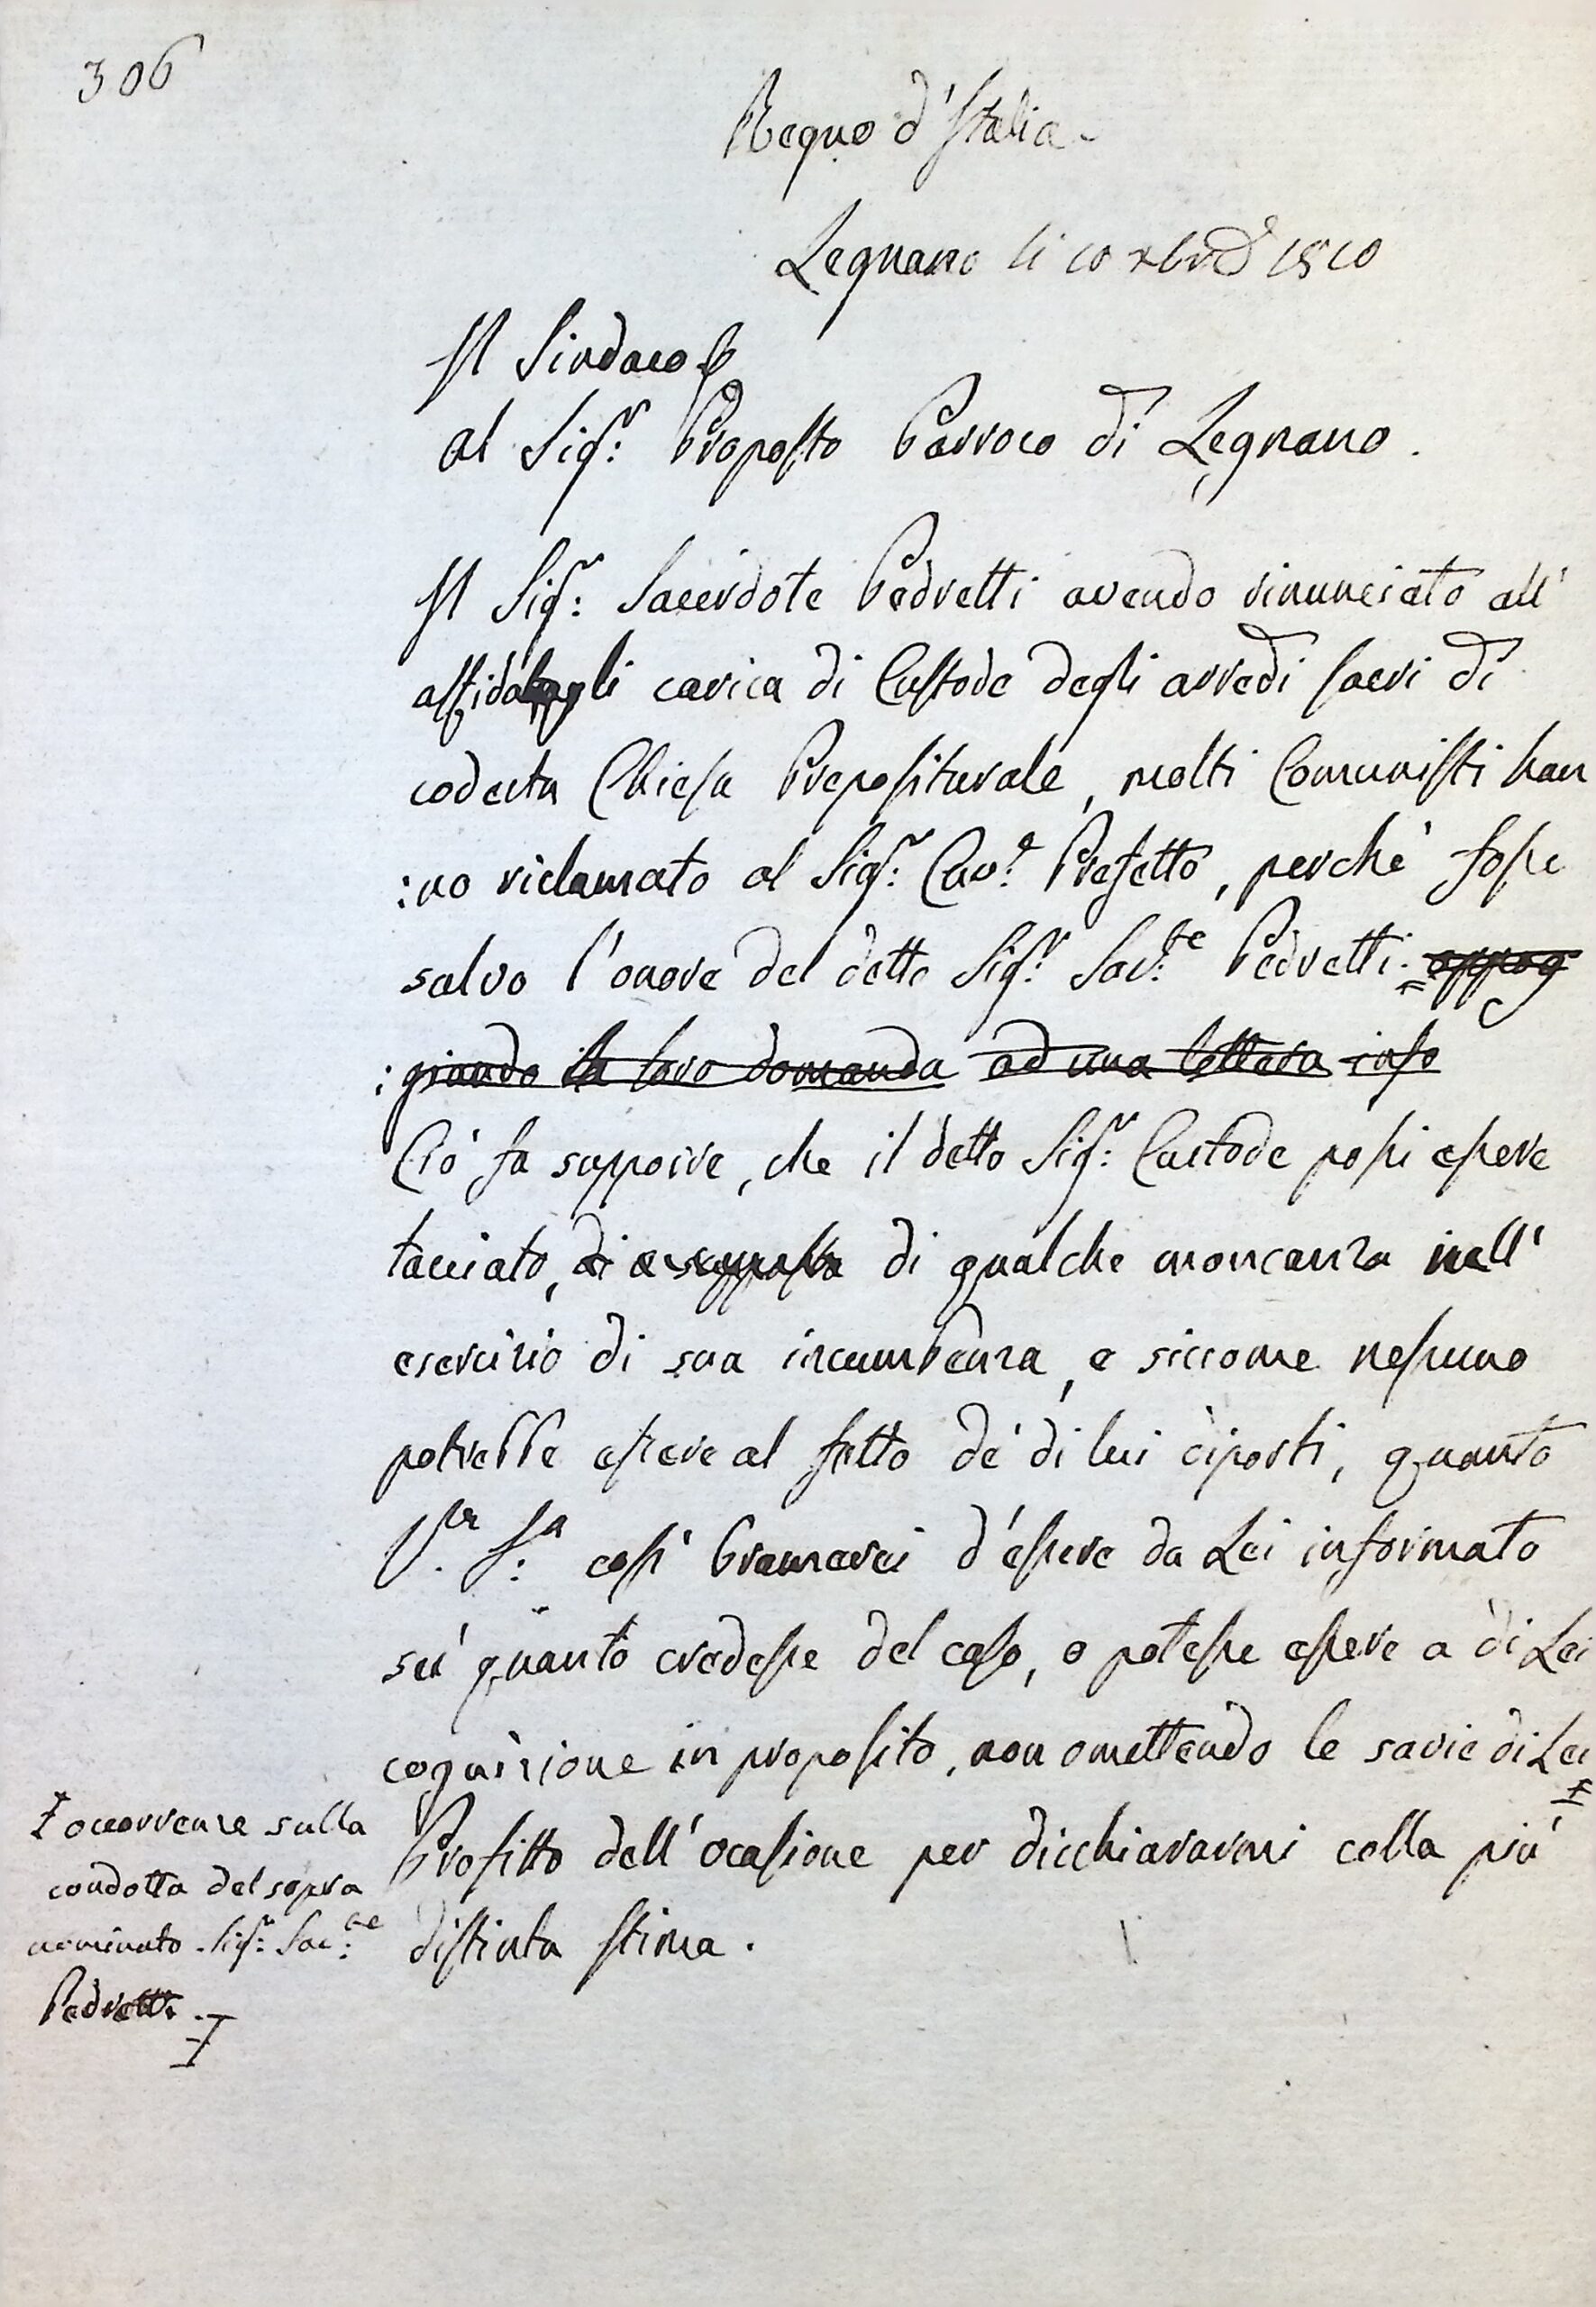 306
Regno d'Italia
Legnano li 10 xbre 1810
Il Sindaco
al Sigr: Proposto Parroco di Legnano.
Il Sigr: Sacerdote Pedretti avendo rinunciato all'
affidatagli carica di Custode degli arredi sacri di
codesta Chiesa Prepositurale, molti Comunisti han
:no riclamato al Sigr: Cave: Prefetto, perchè fosse
salvo l'onore del detto Sigr: Sacte: Pedretti. appog
:giando la loro domanda ad una lettera info
Ciò fa supporre, che il detto Sigr: Custode possi essere
tacciato, di di qualche moncanza nell'
esercizio di sua incumbenza, e siccome nessuno
potrebbe essere al fatto de' di lui diporti, quanto
V.ra S:a così bramarei d'essere da Lei informato
sù quanto credesse del caso, o potesse essere a di Lei
cognizione in proposito, non omettendo le savie di Lei
‡ occorrenze sulla
condotta del sopra
nominato Sigr: Sacte:
Pedretti. ‡
Profitto dell'ocasione per dicchiararmi colla più
distinta stima.